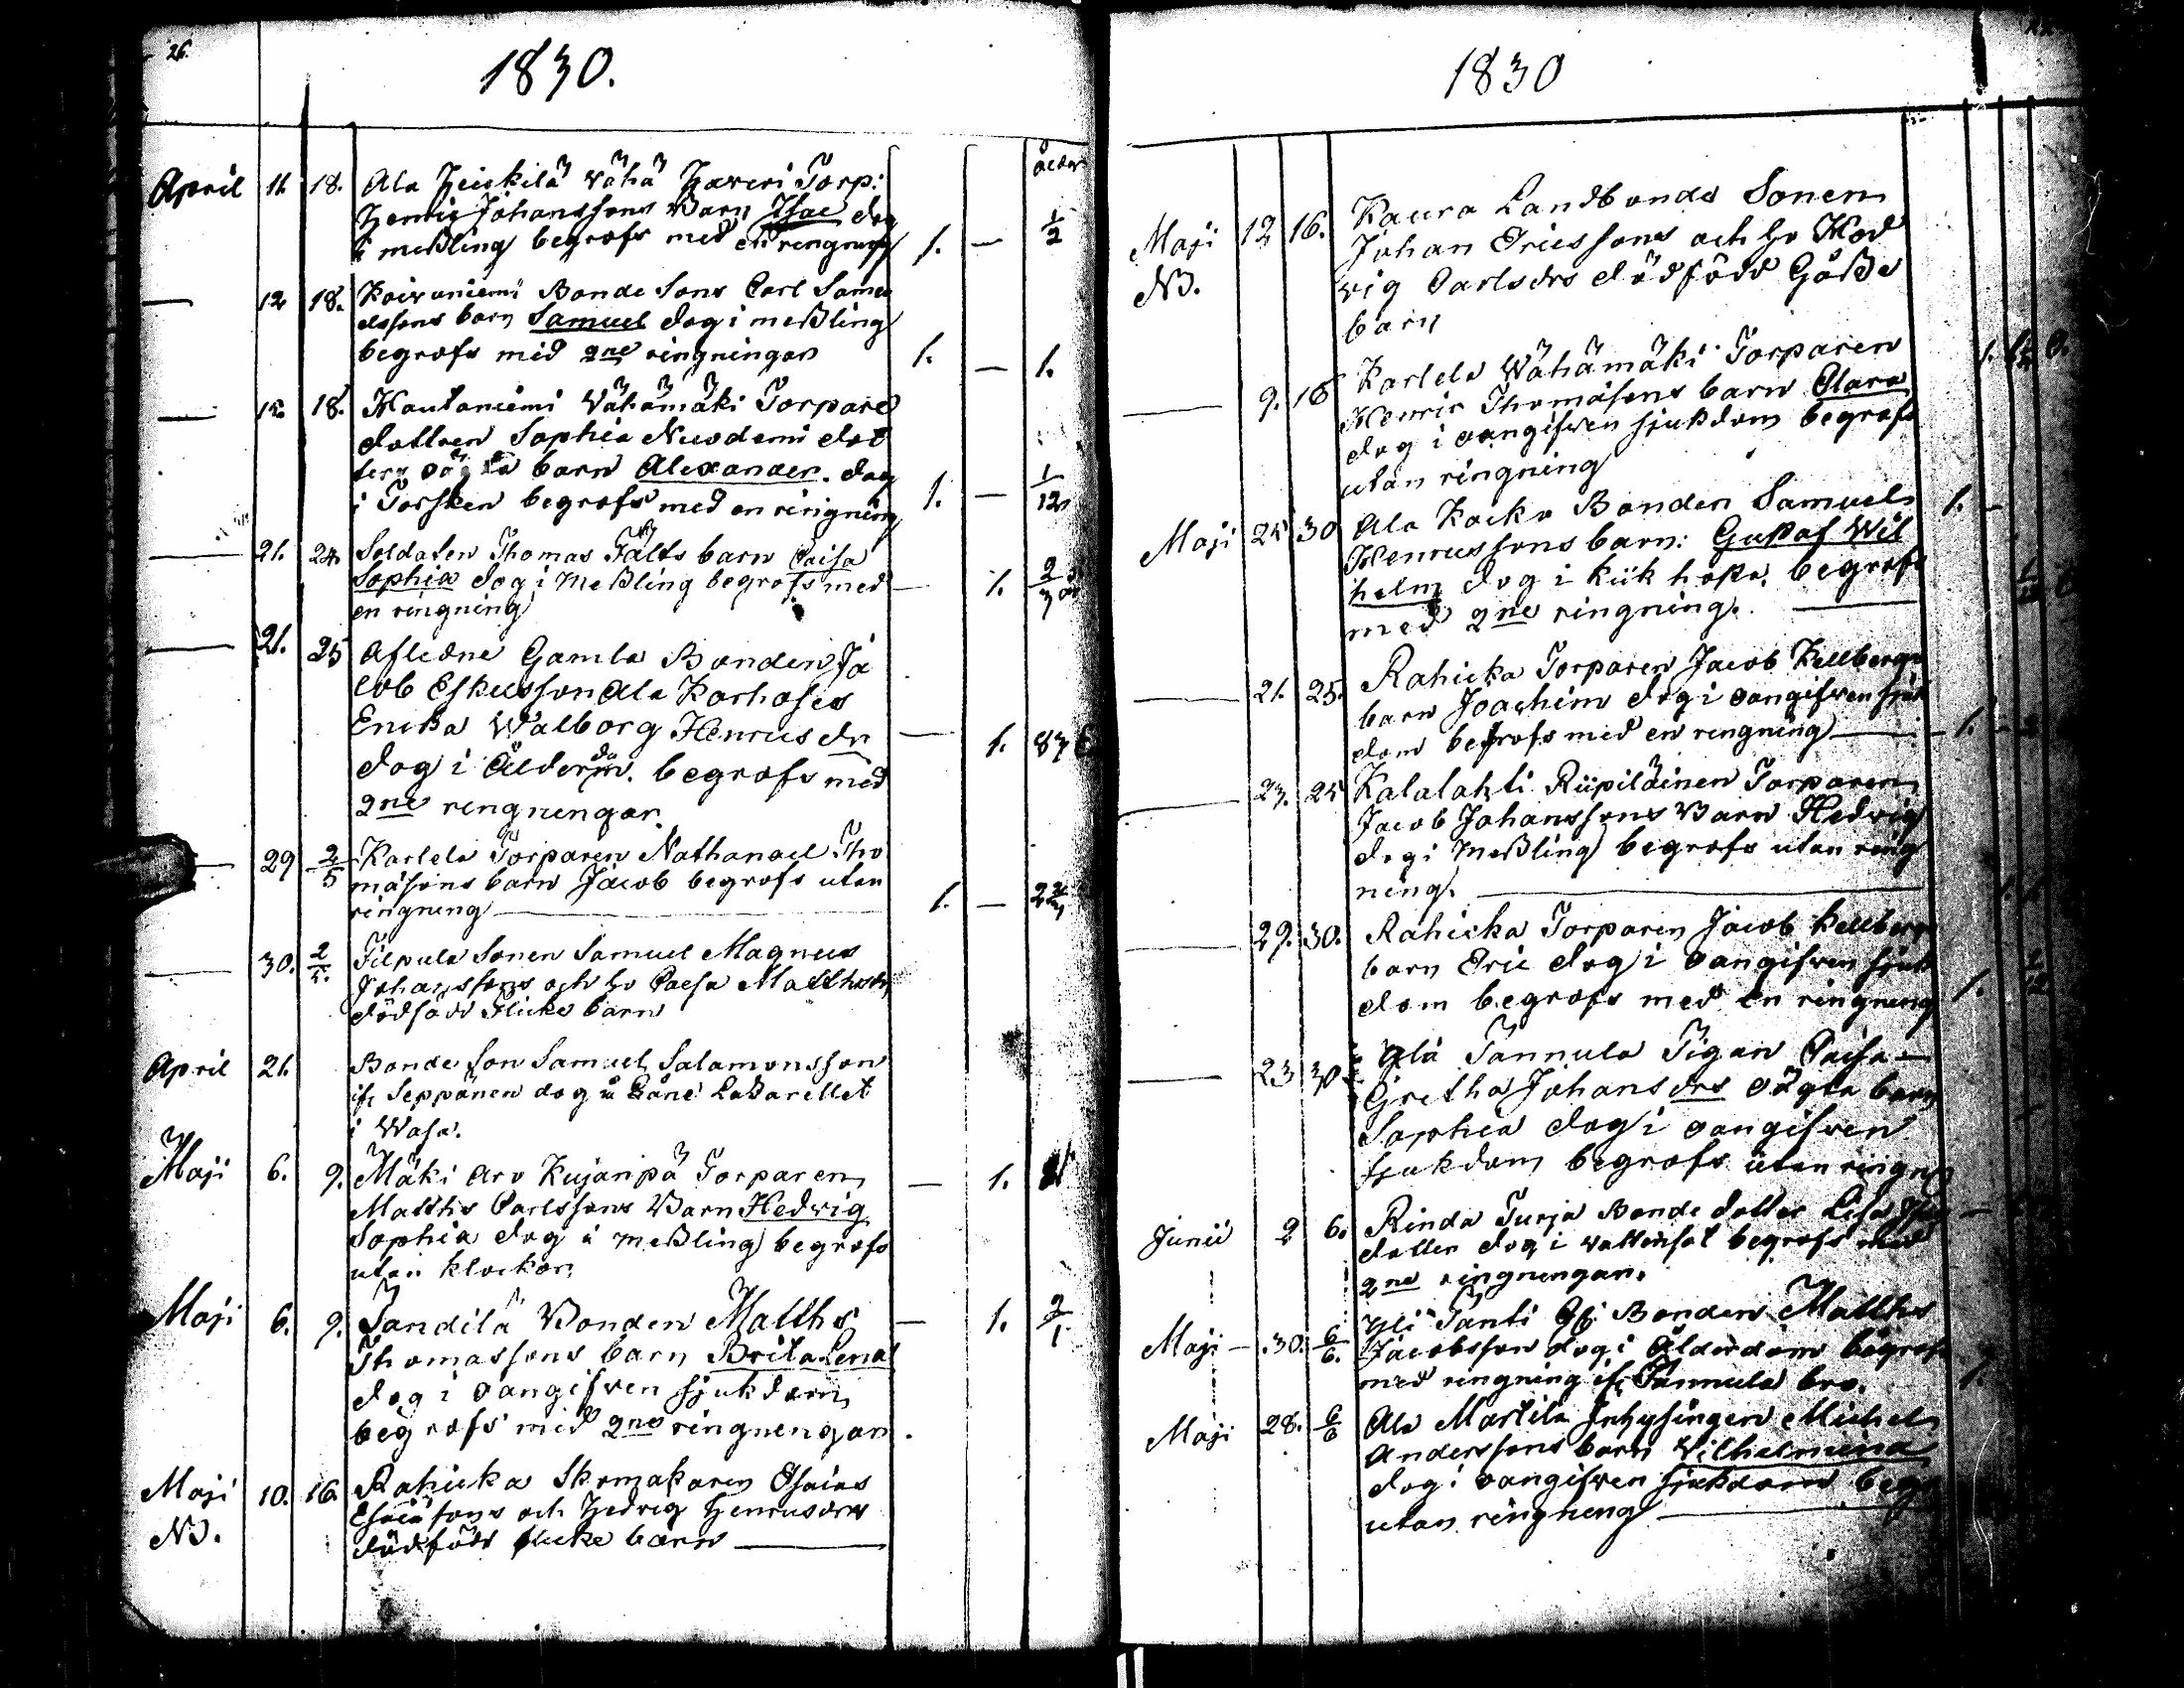 26.
1830.
ålder
April 11. 18. Ala Heickilä Wähä Haveri Torp:
Henric Johanssons Barn Isac dog
i meßling begrofs med en ringning 1. — 1/2
— 12 18. Koivuniemi Bonde Sons Carl Samu
elssons barn Samuel dog i meßling
begrofs med 2ne ringningar 1. — 1.
— 15. 18. Hautaniemi Wähämäki Torpare
dottren Sophia Nicodemi dot
ters oägta barn Alexander. dog
i Torsken begrofs med en ringning 1. — 1/12
— 21. 24. Soldaten Thomas Fälts barn Caisa
Sophia dog i Meßling begrofs med — 1.
en ringning
— 21. 25 Afledne Gamla Bonden Ja
cob Eskilsson Ala Karhoses
Encka Walborg Henricsdr — 1. 83
dog i Ålderdom. begrofs med
2ne ringningar
— 29 2/5 Karlela Torparen Nathanael Tho
mäsons barn Jacob begrofs utan
ringning — 1. —
— 30. 2/5. Filpula Sonen Samuel Magnus
Johanssons och hu Caisa Matthsdr
dödfödd Flicke barn
April 21. Bonde Son Samuel Salamonsson
ifr Seppänen dog å Läne Lazarettet
i Wasa.
Maji 6. 9. Mäki Aro Kujanpä Torparen — 1.
Matths Carlssons Barn Hedvig
Sophia dog i meßling begrofs
utan klockor.
Maji 6. 9. Sandilä Bonden Matths — 1. 2/1
Thomassons barn Brita Lena
dog i oangifven sjukdom
begrofs med 2ne ringningar.
Maji 10. 16. Rahicka Skomakaren Esaias
NB. Esaiæsons och Hedvig Henricsdrs
dödfödt flicke barn —
1830
Maji 12 16. Kaura Landbonde Sonen
NB. Johan Ericssons och hu Hed
vig Carlsdrs dödfödd Gåße
barn
— 9. 16 Karlela Wähämäki Torparen
Henric Thomäsons barn Clara
dog i oangifven sjukdom begrofs
utan ringning
Maji 25 30 Ala Kocko Bonden Samuel 1. —
Henricssons barn: Gustaf Wil
helm dog i kikhosta. begrofs
med 2ne ringning. —
— 21. 25. Rahicka Torparen Jacob Kellbergs
barn Joachim dog i oangifven sjuk
dom begrofs med en ringning — 1.
— 23. 25 Kalalahti Riipiläinen Torparen
Jacob Johanssons Barn Hedvig
dog i Meßling begrofs utan ring
ning. —
— 29. 30. Rahicka Torparen Jacob Kellbergs
barn Eric dog i oangifven sjuk
dom begrofs med en ringning 1.
— 23 30 Ala Tannula Pigan Caisa
Gretha Johansdrs oägta barn
Sophia dog i oangifven
sjukdom begrofs utan ringning
Junii 2 6. Rinda Turja Bonde dotter Lisa
dotter dog i vattensot begrofs med
2ne ringningar.
Maji — 30. 6/6. Yli Panti Bonden Matths
Jacobsson dog i Ålderdom begrofs
med ringning ifr Tannula bro. 1.
Maji 28. 6/6 Ala Martila Inhysingen Michel
Anderssons barn Wilhelmina
dog i oangifven sjukdom begr
utan ringning —